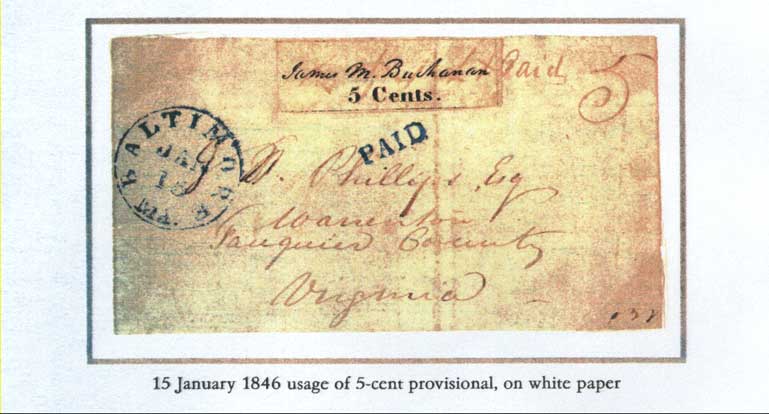 James M. Buchanan
5 Cents.
Paid
5
BALTIMORE MD.
JAN
15
PAID
Phillips, Esq
Warrenton
Fauquier County
Virginia
15 January 1846 usage of 5-cent provisional, on white paper